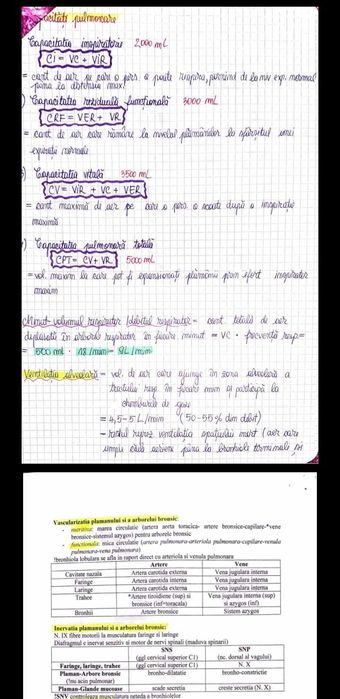 Capacități pulmonare
Capacitatea inspiratorie 2000 mL
CI = VC + VIR
= cant de aer pe care o pers. o poate respira, pornind de la niv exp. normal
până la distensia max!
Capacitatea reziduală funcțională 3000 mL
CRF = VER + VR
= cant. de aer care rămâne la nivelul plămânilor la sfârșitul unei
expirații normale
Capacitatea vitală 3500 mL
CV = VIR + VC + VER
= cant maximă de aer pe care o pers. o scoate după o inspirație
maximă
Capacitatea pulmonară totală
CPT = CV + VR 5000 mL
= vol. maxim la care pot fi expansionați plămânii prin efort inspirator
maxim
Minut-volumul respirator/debitul respirator = cant. totală de aer
deplasată în arborele respirator în fiecare minut = VC · frecvența resp =
= 500 ml · 18/min = 9L/min
Ventilația alveolară - vol. de aer care ajunge în zona alveolară a
tractului resp. în fiecare min și participă la
schimburile de gaze
= 4,5-5 L/min (50-55% din debit)
- restul reprez. ventilația spațiului mort (aer care
umple căile aeriene până la bronhiola terminală
Vascularizatia plamanului si a arborelui bronsic:
- nutritiva: marea circulatie (artera aorta toracica- artere bronsice-capilare-*vene
bronsice-sistemul azygos) pentru arborele bronsic
- functionala: mica circulatie (artera pulmonara-arteriola pulmonara-capilare-venula
pulmonara-vena pulmonara)
!bronhiola lobulara se afla in raport direct cu arteriola si venula pulmonara
Artere Vene
Cavitate nazala Artera carotida externa Vena jugulara interna
Faringe Artera carotida externa Vena jugulara interna
Laringe Artera carotida externa Vena jugulara interna
Trahee *Artere tiroidiene (sup) si Vena jugulara interna (sup)
bronsice (inf=toracala) si azygos (inf)
Bronhii Artere bronsice Sistem azygos
Inervatia plamanului si a arborelui bronsic:
N. IX fibre motorii la musculatura faringe si laringe
Diafragmul e inervat senzitiv si motor de nervi spinali (maduva spinarii)
SNS SNP
(ggl cervical superior C1) (nc. dorsal al vagului)
Faringe, laringe, trahee (ggl cervical superior C1) N. X
Plaman-Arbore bronsic bronho-dilatatie bronho-constrictie
(!nu acin pulmonar)
Plaman-Glande mucoase scade secretia creste secretia (N. X)
*SNV controleaza musculatura neteda a bronhiolelor